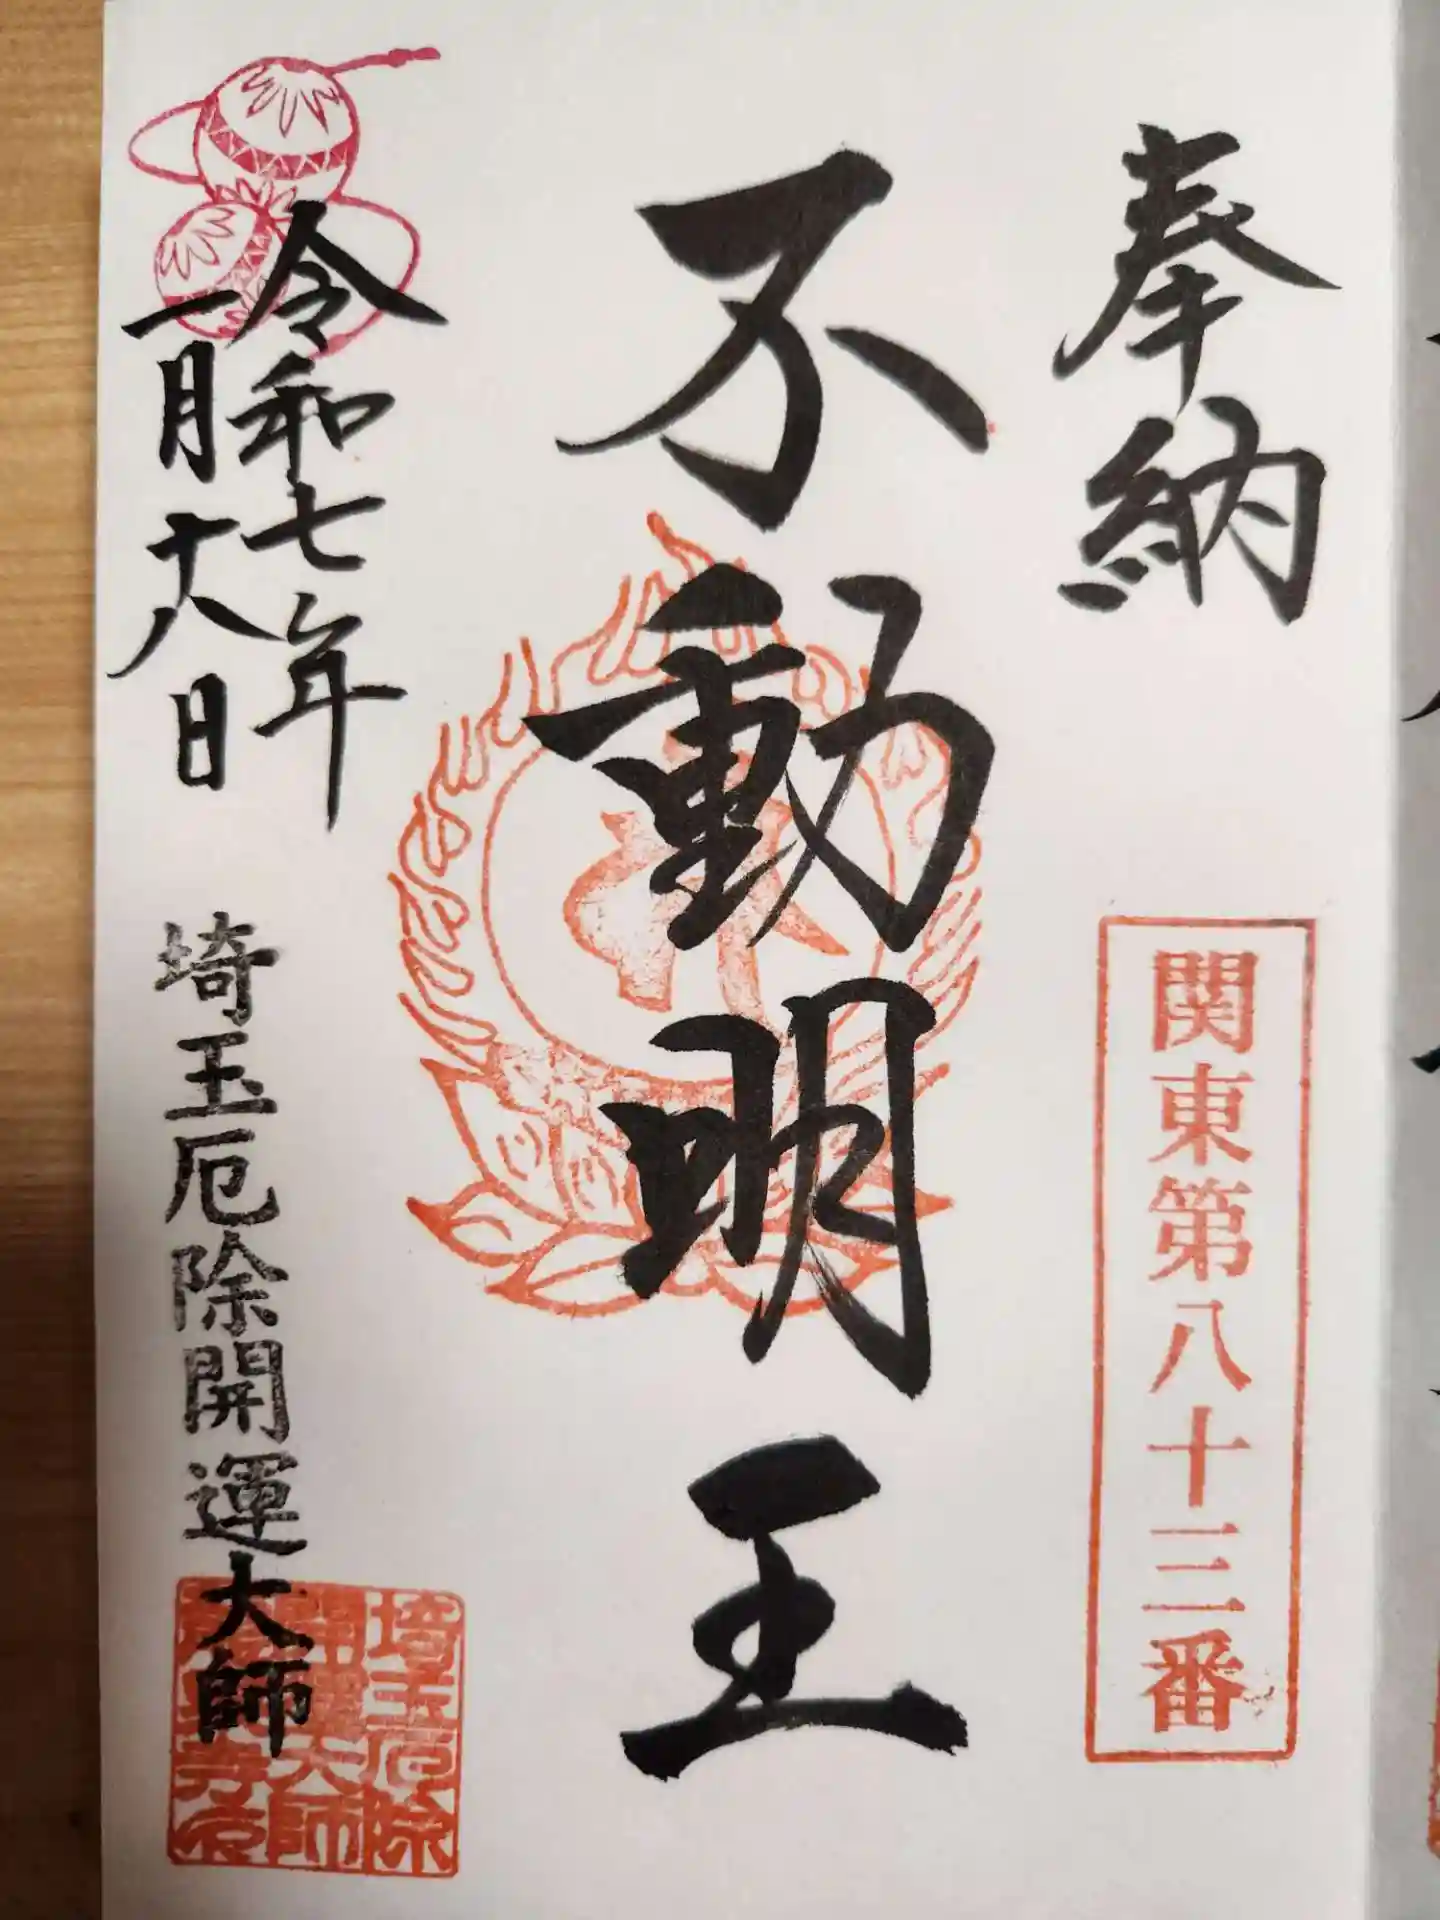 奉納
関東第八十三番
不動明王
令和七年
一月十八日
埼玉厄除開運大師
埼玉厄除
開運大師